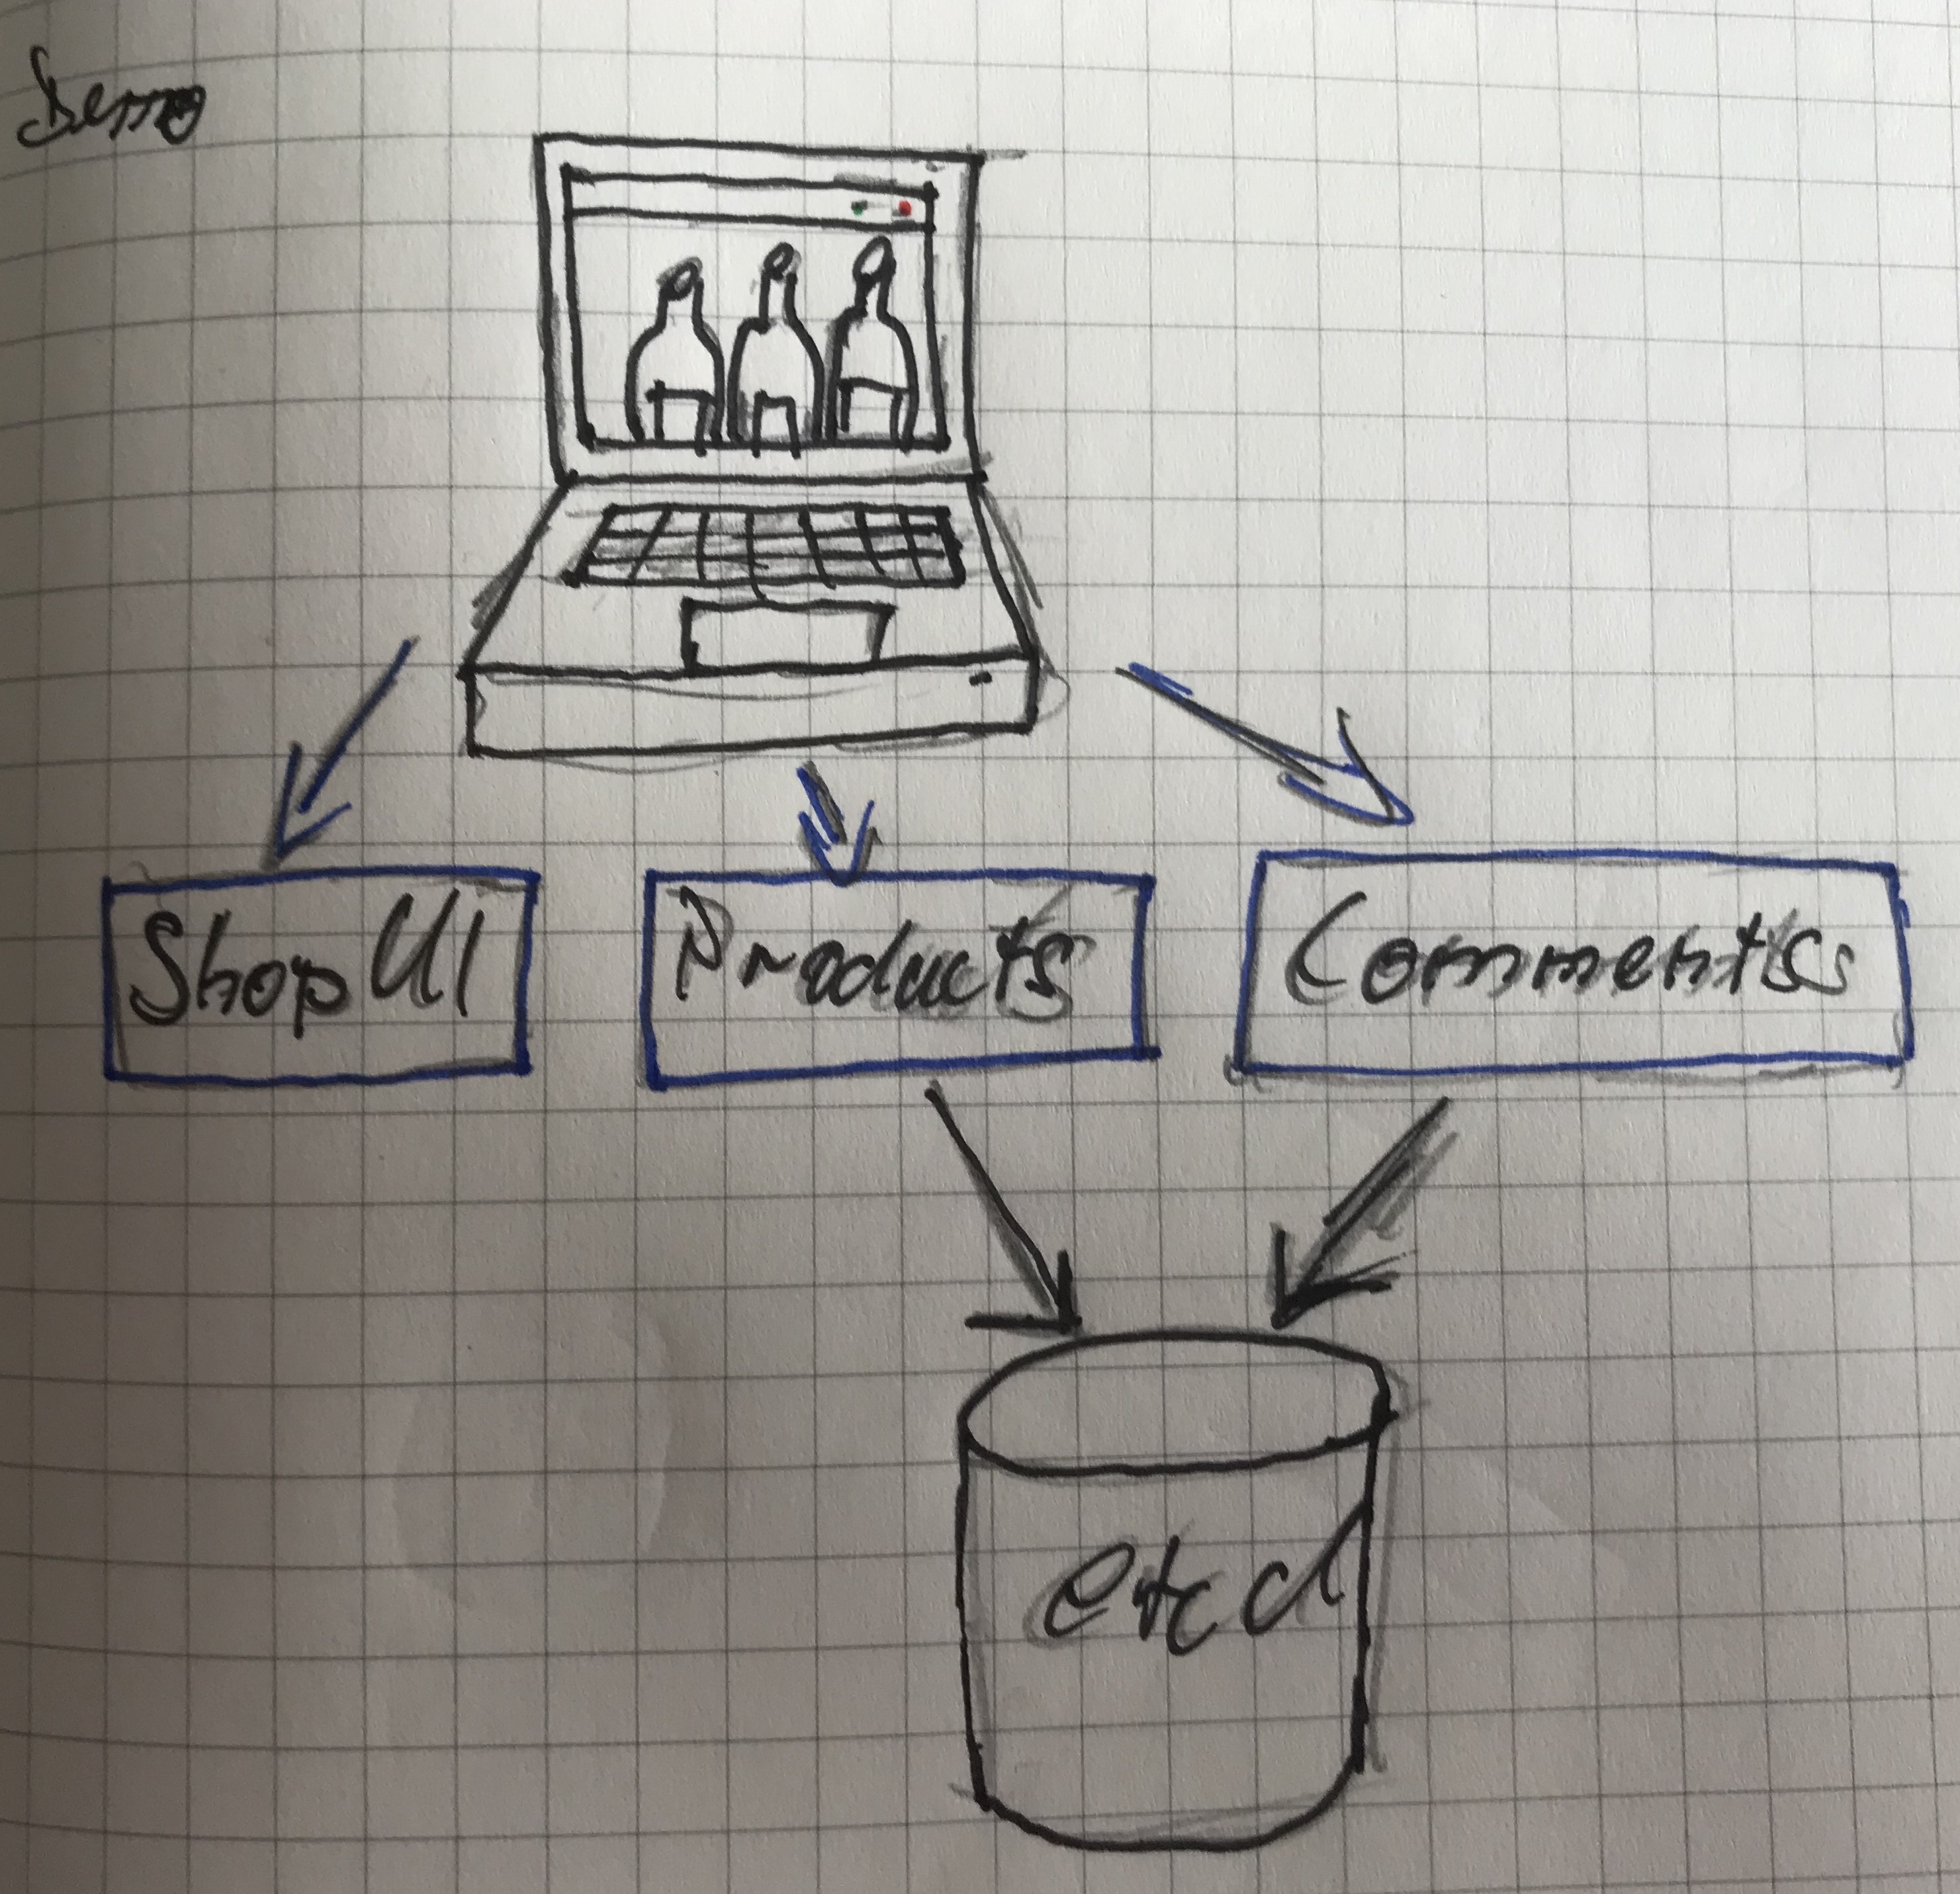 Demo
Shop UI
Products
Comments
etcd